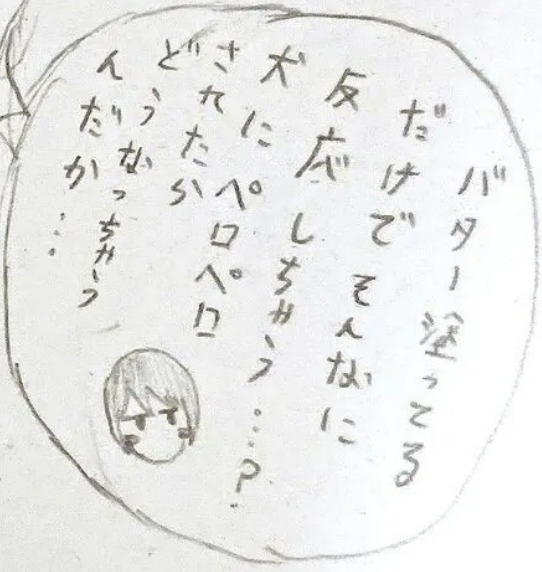 バター塗ってる
だけでそんなに
反応しちゃう…?
犬にペロペロ
されたら
どうなっちゃう
んだか…